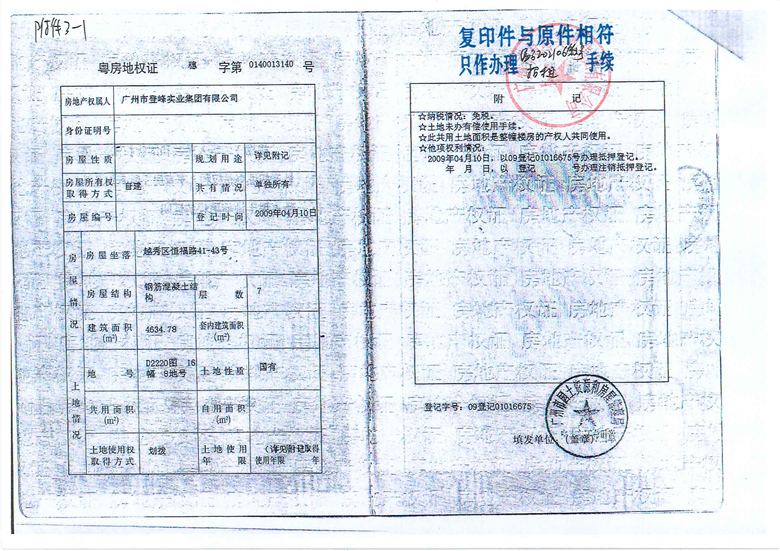 复印件与原件相符
只作办理
手续
粤房地权证 穗 字第 0140013140 号
房地产权属人 广州市登峰实业集团有限公司
身份证明号
房屋性质 规划用途 详见附记
房屋所有权取得方式 自建 共有情况 单独所有
房屋编号 登记时间 2009年04月10日
房屋情况
房屋坐落 越秀区恒福路41-43号
房屋结构 钢筋混凝土结构 层数 7
建筑面积(m²) 4634.78 套内建筑面积(m²)
土地情况
地号 D2220图 16幅 8地号 土地性质 国有
共用面积(m²) 自用面积(m²)
土地使用权取得方式 划拨 土地使用年限 (详见附记)取得使用年限 年
附 记
☆纳税情况: 免税。
☆土地未办有偿使用手续。
☆此共用土地面积是整幢楼房的产权人共同使用。
☆他项权利情况:
2009年04月10日, 以09登记01016675号办理抵押登记。
年 月 日, 以 登记 号办理注销抵押登记。
登记字号: 09登记01016675
填发单位: (盖章)
广州市国土资源和房屋管理局